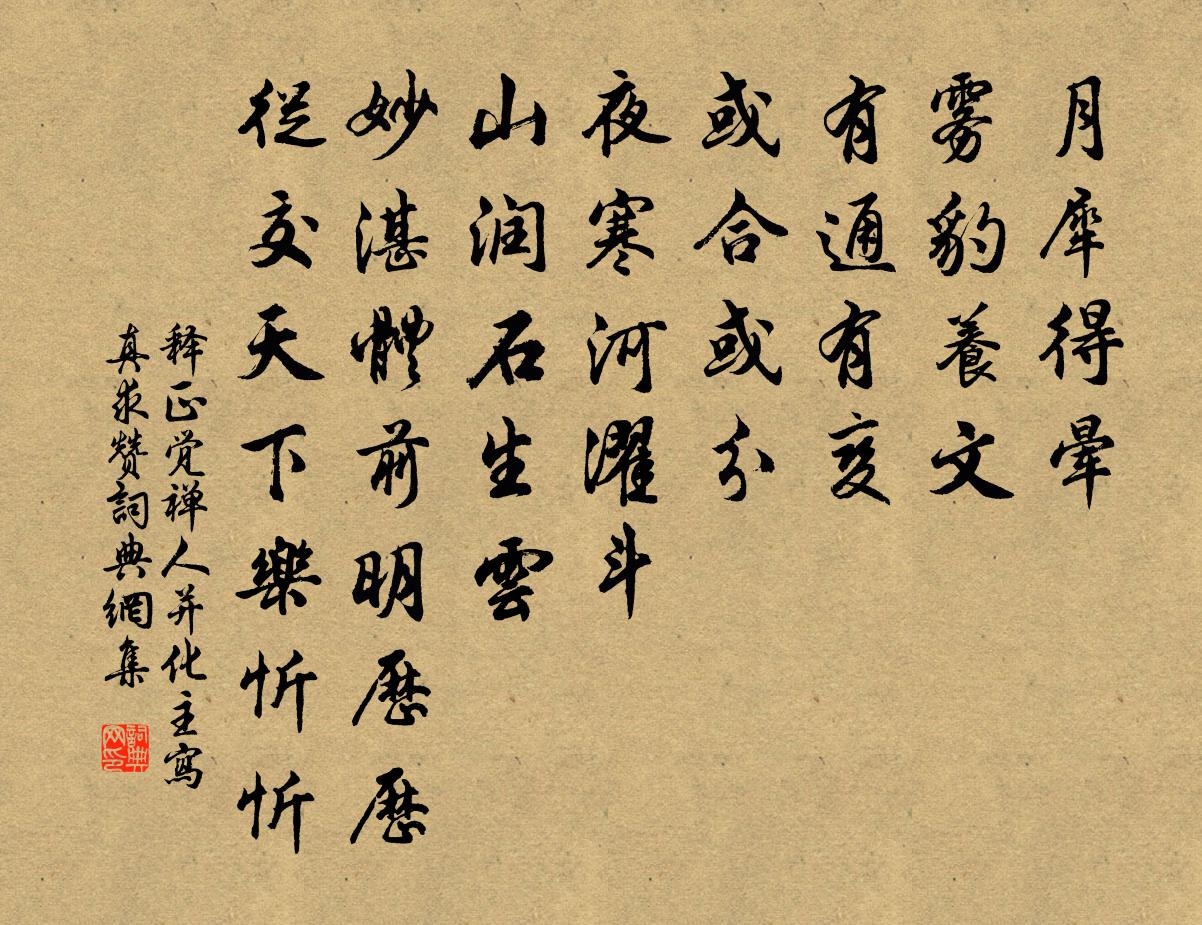 月犀得暈
雾豹養文
有通有变
或合或分
夜寒河濯斗
山润石生雲
妙湛體前明歷歷
從交天下樂忻忻
释正觉禅人并化主寫
真求赞詞典網集
詞典
网印